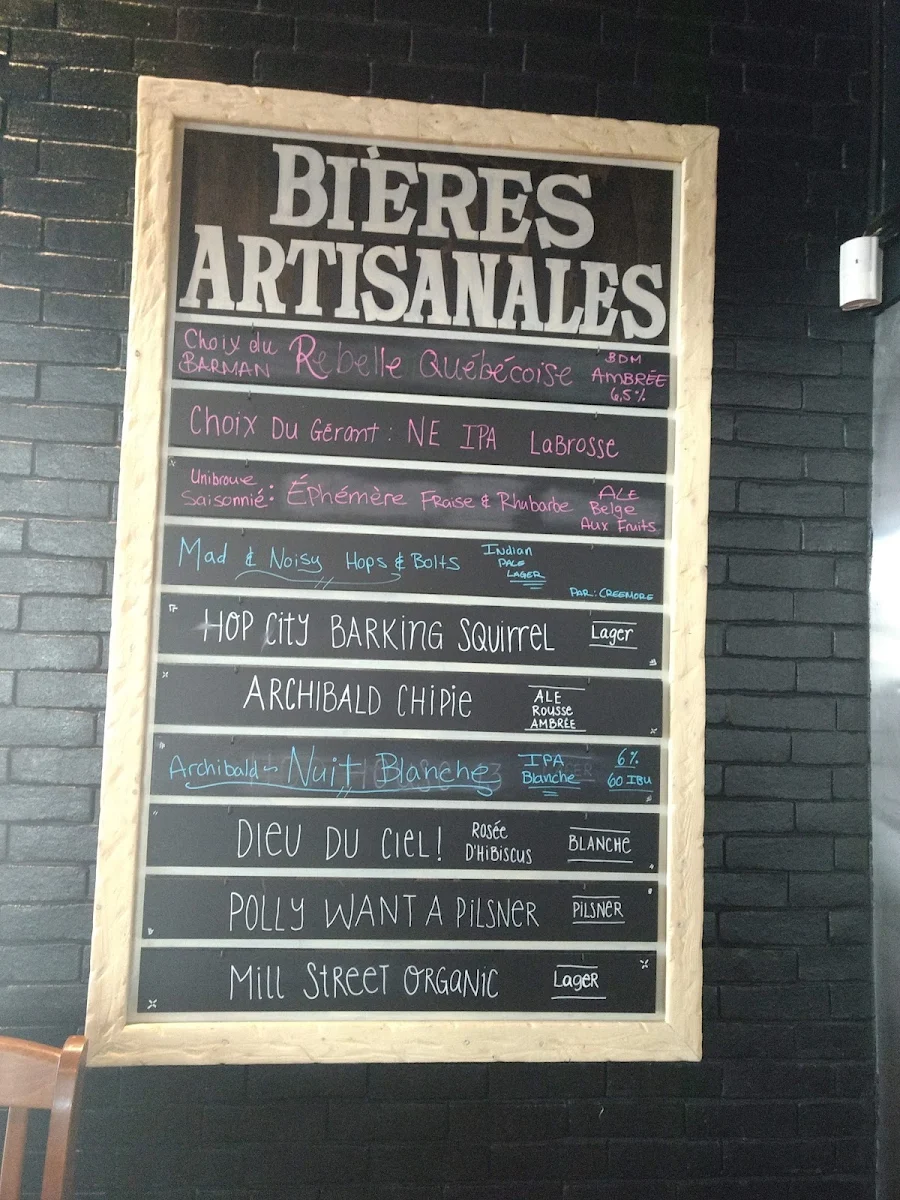 BIÈRES
ARTISANALES
Choix du BARMAN Rebelle Québécoise BDM AMBRÉE 6,5%
Choix Du Gérant : NE IPA LaBrosse
Unibroue Saisonnié : Éphémère Fraise & Rhubarbe ALE Belge Aux Fruits
Mad & Noisy Hops & Bolts Indian PALE LAGER PAR : CREEMORE
HOP City BARKING SQUIRREL Lager
ARCHIBALD CHIPIE ALE Rousse AMBRÉE
Archibald ~ Nuit Blanche IPA Blanche 6% 60 IBU
DIEU DU CIEL! ROSÉE D'HIBISCUS BLANCHE
POLLY WANT A PILSNER PILSNER
MILL STREET ORGANIC Lager